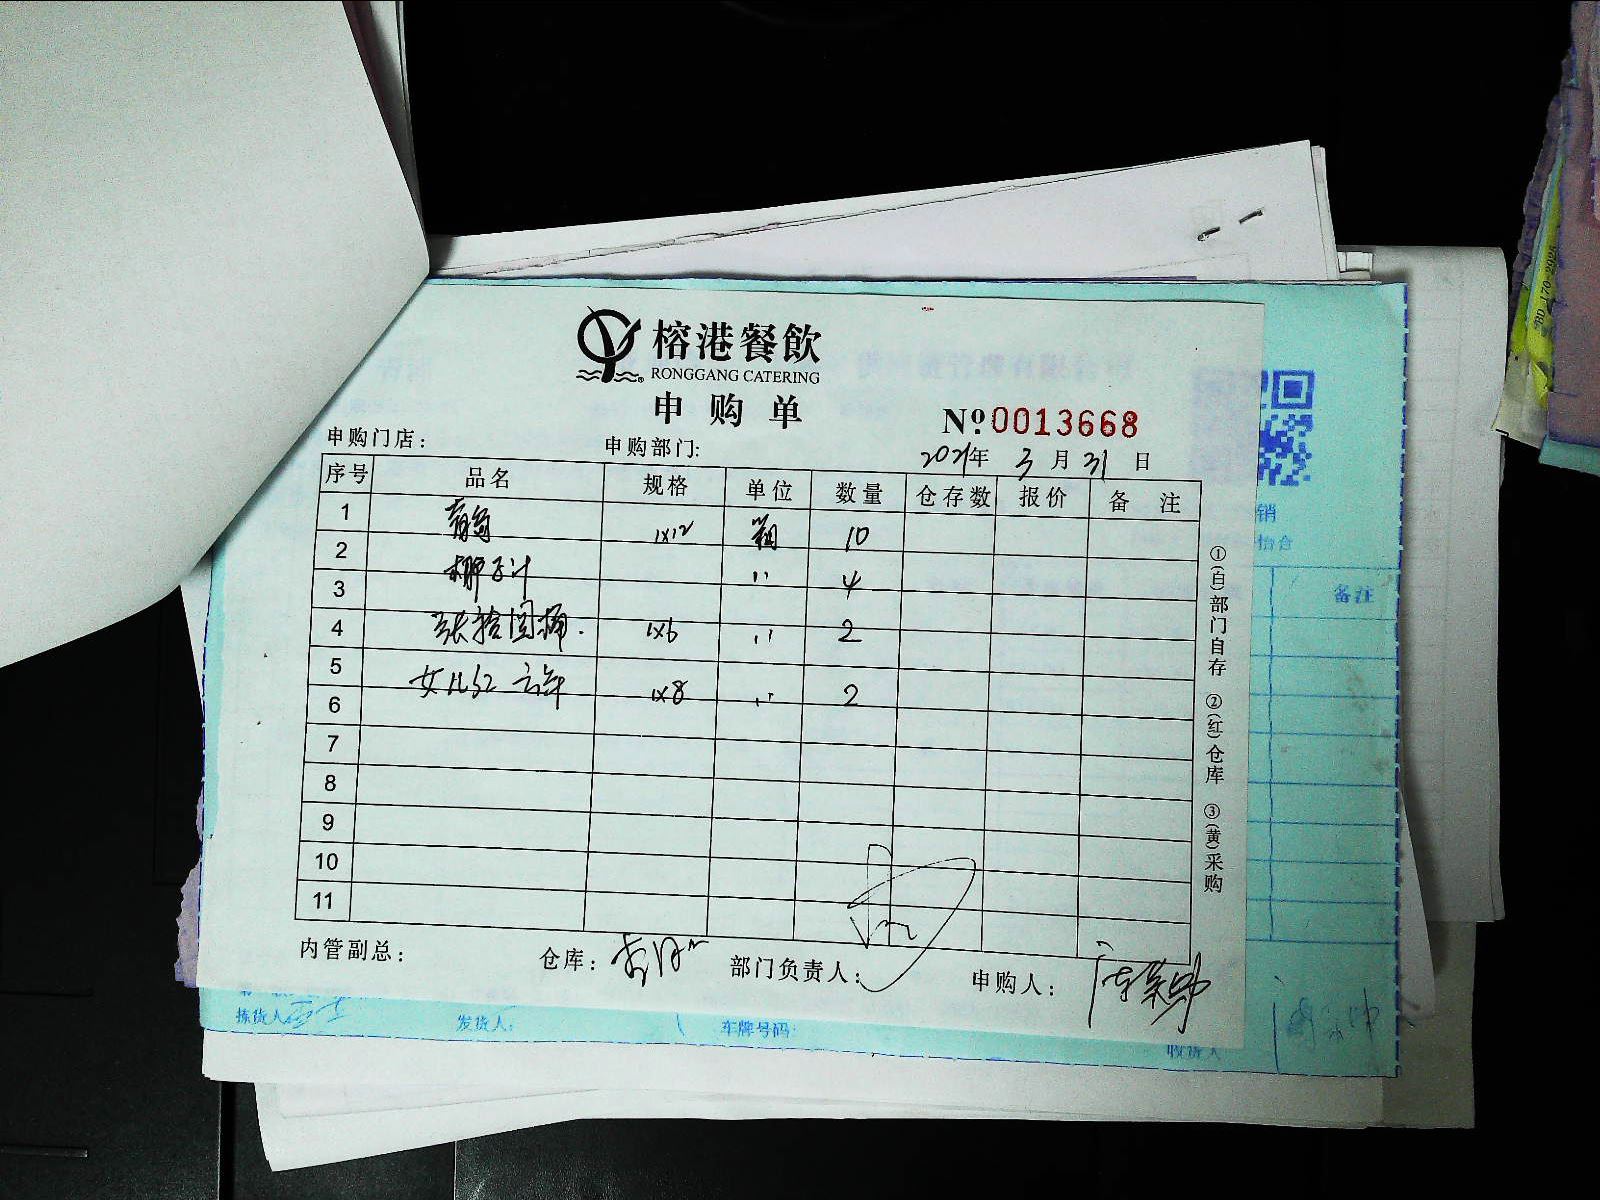 榕港餐飲
RONGGANG CATERING
申购单
№ 0013668
申购门店： 申购部门: 2021年 3月 31日
序号 品名 规格 单位 数量 仓存数 报价 备注
1 青岛 1x12 箱 10
2 椰子汁 〃 4
3
4 张拾园桶 1x6 〃 2
5 女儿红 六年 1x8 〃 2
6
7
8
9
10
11
内管副总： 仓库： 部门负责人： 申购人：
①(白)部门自存 ②(红)仓库 ③(黄)采购
销
怡合
备注
拣货人 发货人: 车牌号码: 收货人
BD 170-2025